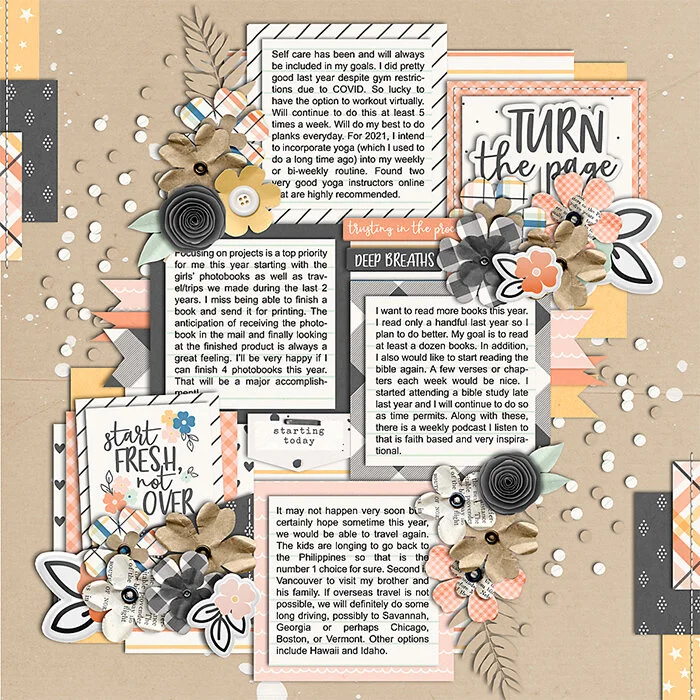 Self care has been and will always
be included in my goals. I did pretty
good last year despite gym restric-
tions due to COVID. So lucky to
have the option to workout virtually.
Will continue to do this at least 5
times a week. Will do my best to do
planks everyday. For 2021, I intend
to incorporate yoga (which I used to
do a long time ago) into my weekly
or bi-weekly routine. Found two
very good yoga instructors online
that are highly recommended.
TURN
the page
trusting in the proc
DEEP BREATHS
Focusing on projects is a top priority
for me this year starting with the
girls' photobooks as well as trav-
el/trips we made during the last 2
years. I miss being able to finish a
book and send it for printing. The
anticipation of receiving the photo-
book in the mail and finally looking
at the finished product is always a
great feeling. I'll be very happy if I
can finish 4 photobooks this year.
That will be a major accomplish-
ment!
I want to read more books this year.
I read only a handful last year so I
plan to do better. My goal is to read
at least a dozen books. In addition,
I also would like to start reading the
bible again. A few verses or chap-
ters each week would be nice. I
started attending a bible study late
last year and I will continue to do so
as time permits. Along with these,
there is a weekly podcast I listen to
that is faith based and very inspira-
tional.
starting
today
start
FRESH,
not
OVER
It may not happen very soon but
certainly hope sometime this year,
we would be able to travel again.
The kids are longing to go back to
the Philippines so that is the
number 1 choice for sure. Second is
Vancouver to visit my brother and
his family. If overseas travel is not
possible, we will definitely do some
long driving, possibly to Savannah,
Georgia or perhaps Chicago,
Boston, or Vermont. Other options
include Hawaii and Idaho.